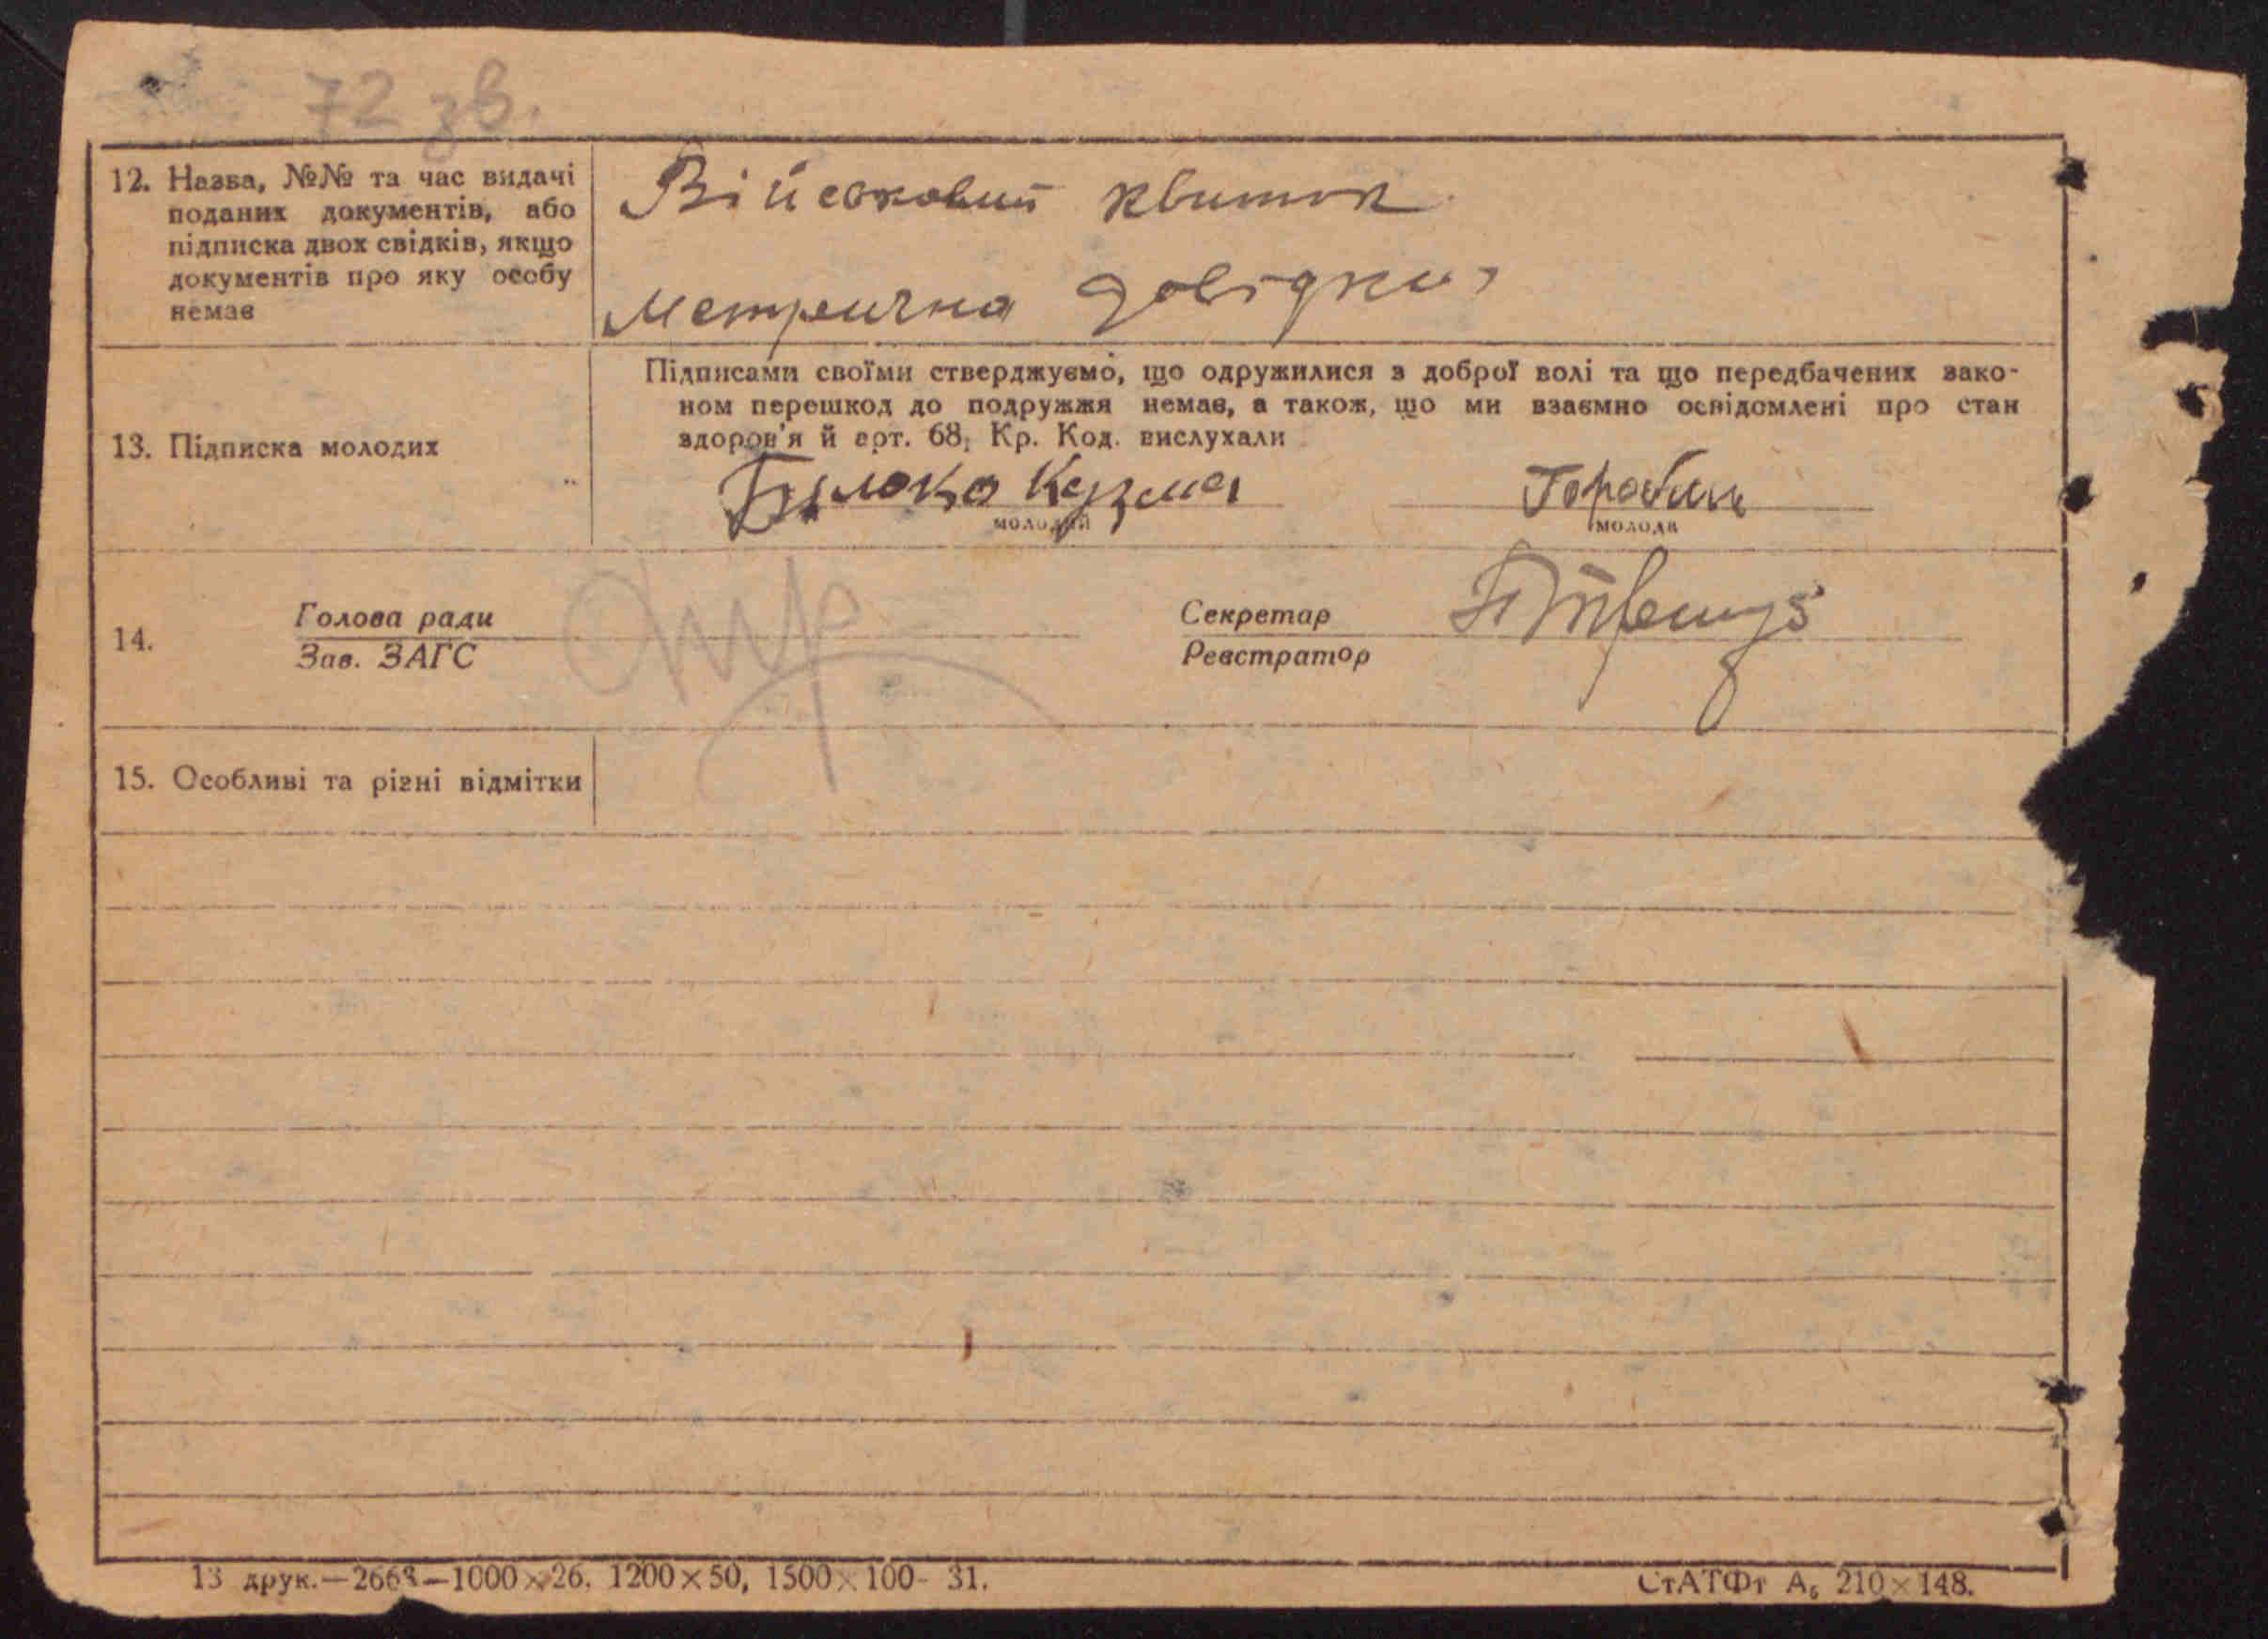 72 зв.
12. Назва, №№ та час видачі
поданих документів, або
підписка двох свідків, якщо
документів про яку особу
немає
Військовий квиток
Метрична довідка
13. Підписка молодих
Підписами своїми стверджуємо, що одружилися з доброї волі та що передбачених зако-
ном перешкод до подружжя немає, а також, що ми взаємно освідомлені про стан
здоров'я й арт. 68, Кр. Код. вислухали
Кузма
молодий
молода
14.
Голова ради
Зав. ЗАГС
Секретар
Реєстратор
15. Особливі та різні відмітки
13 друк.—2663—1000×26, 1200×50, 1500×100- 31.
СтАТФт А₅ 210×148.